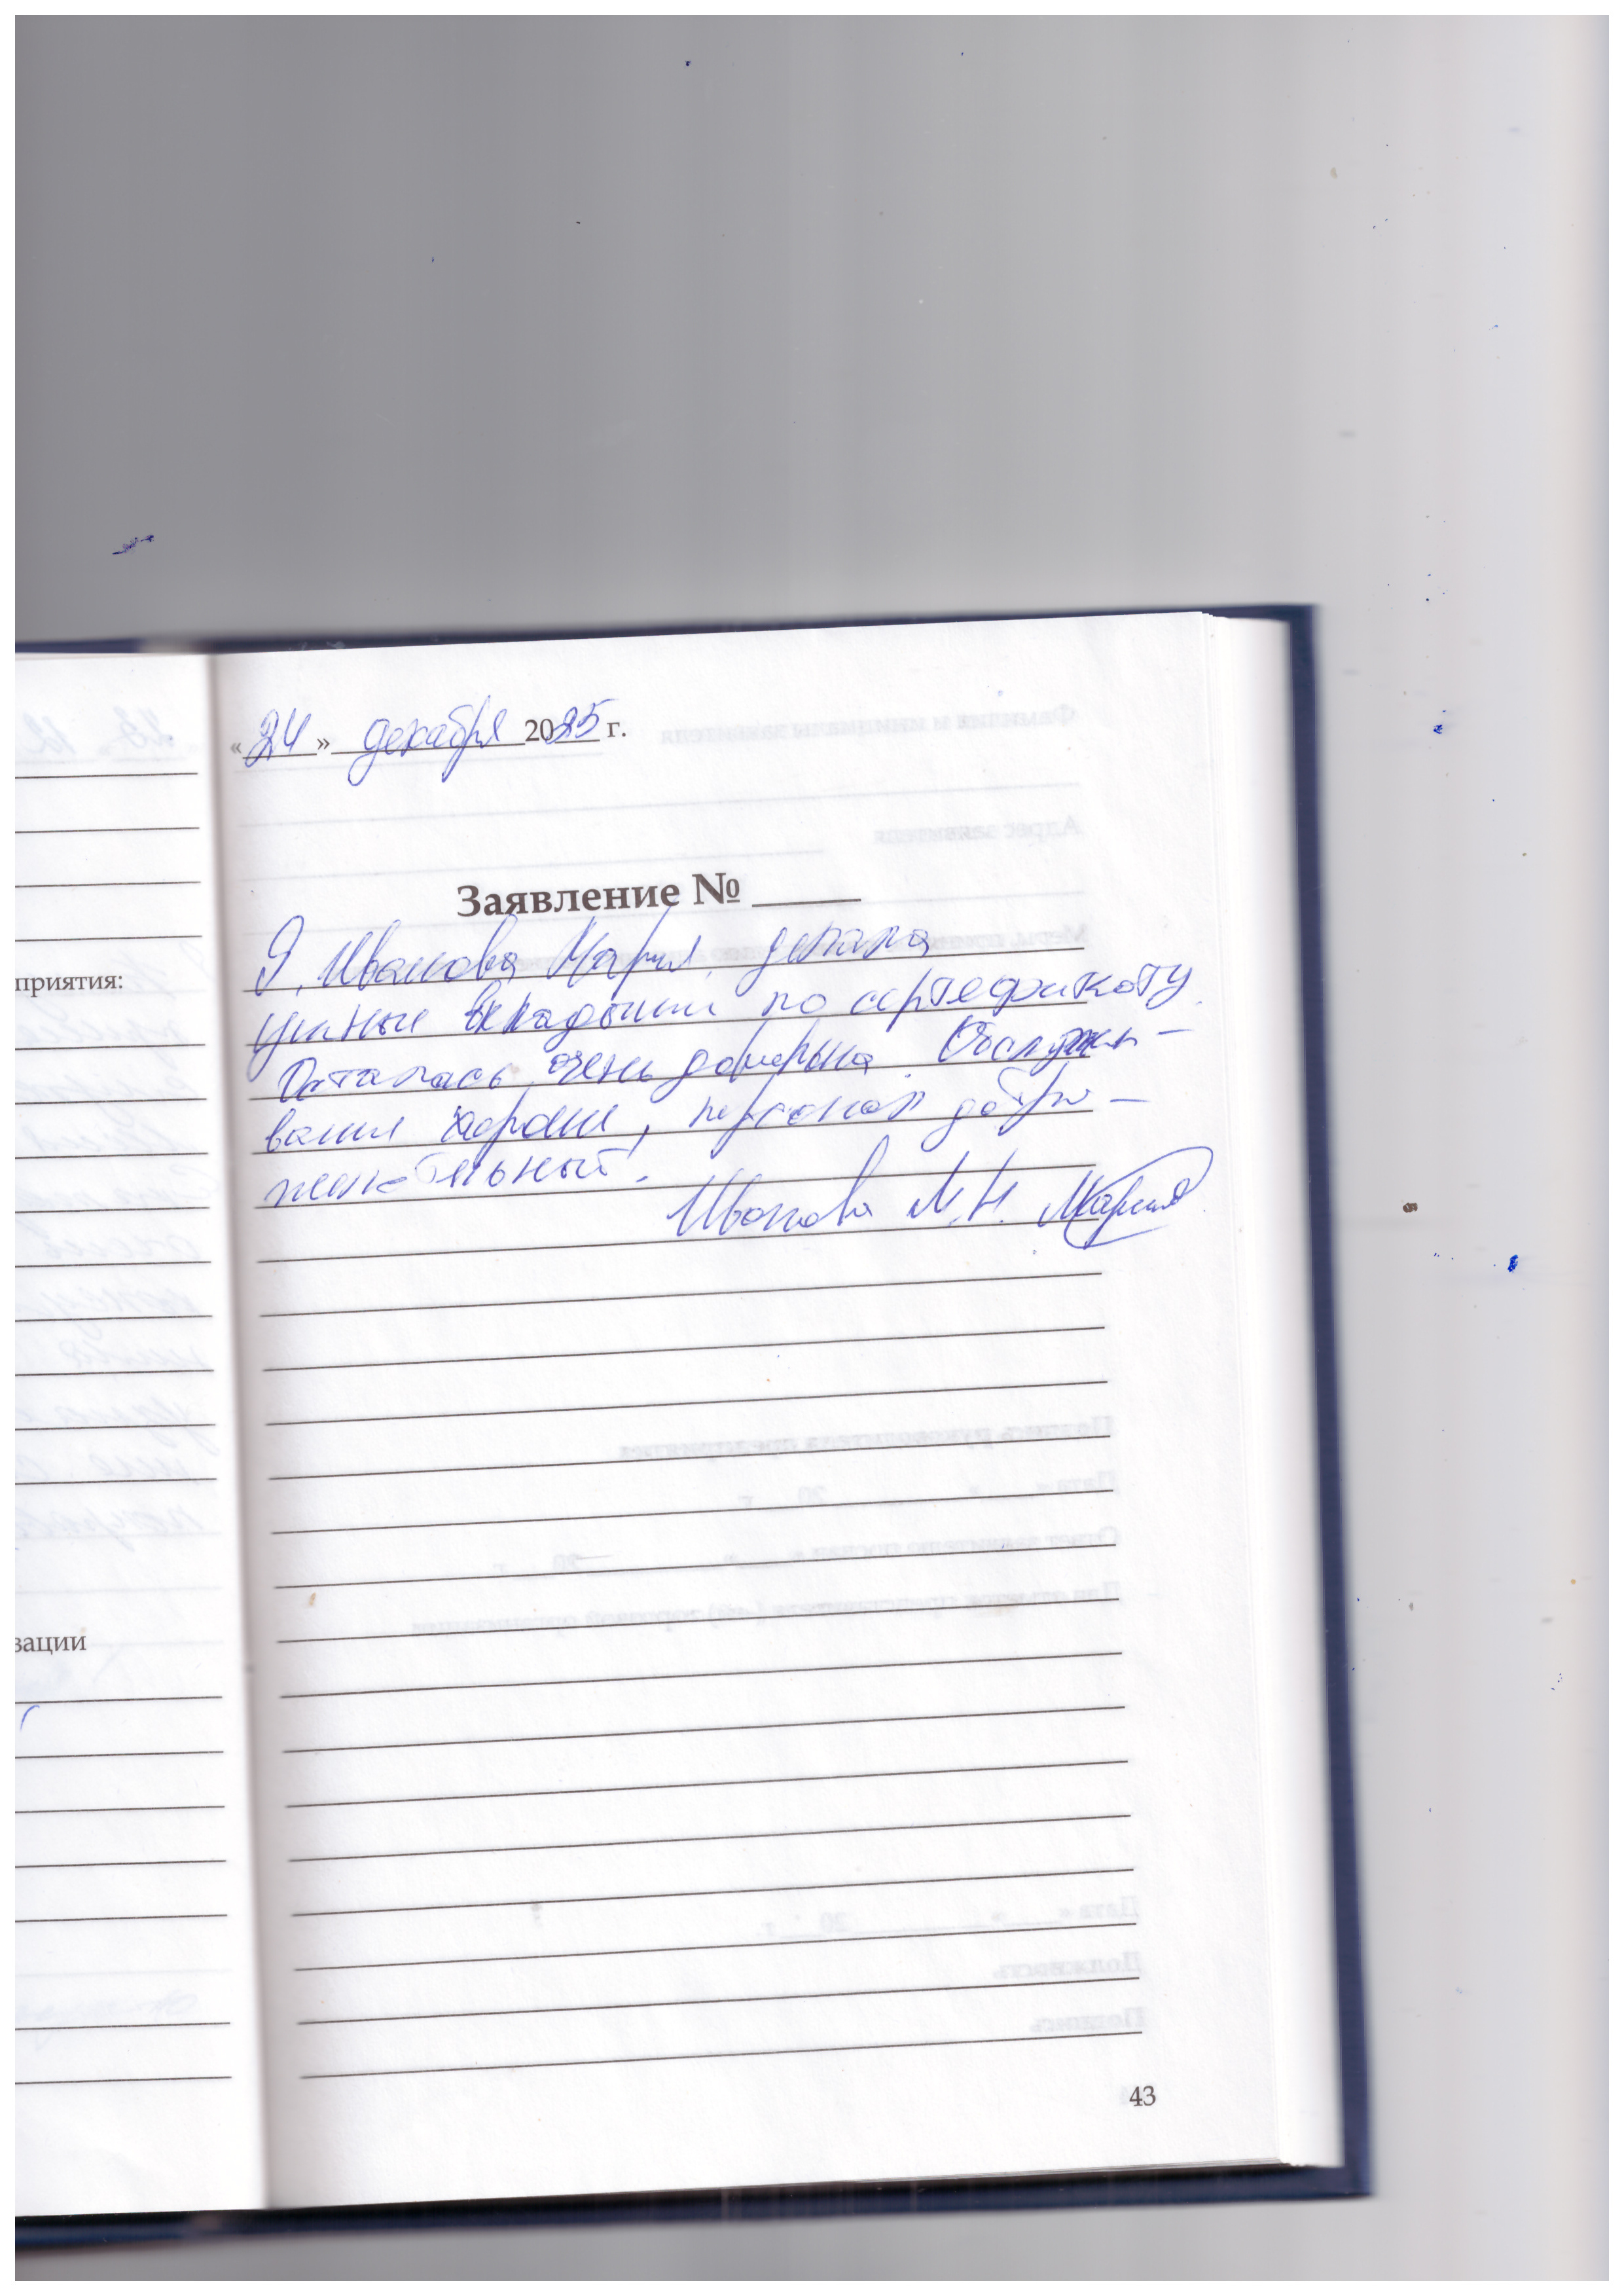 приятия:
зации
«24» декабря 2025 г.
Заявление №
Я, Иванова Мария, делала
ушные вкладыши по сертефикату.
Осталась очень довольна. Обслужи-
вания хорошие, персонал добро-
желательный.
Иванова М.Н. Мария
43